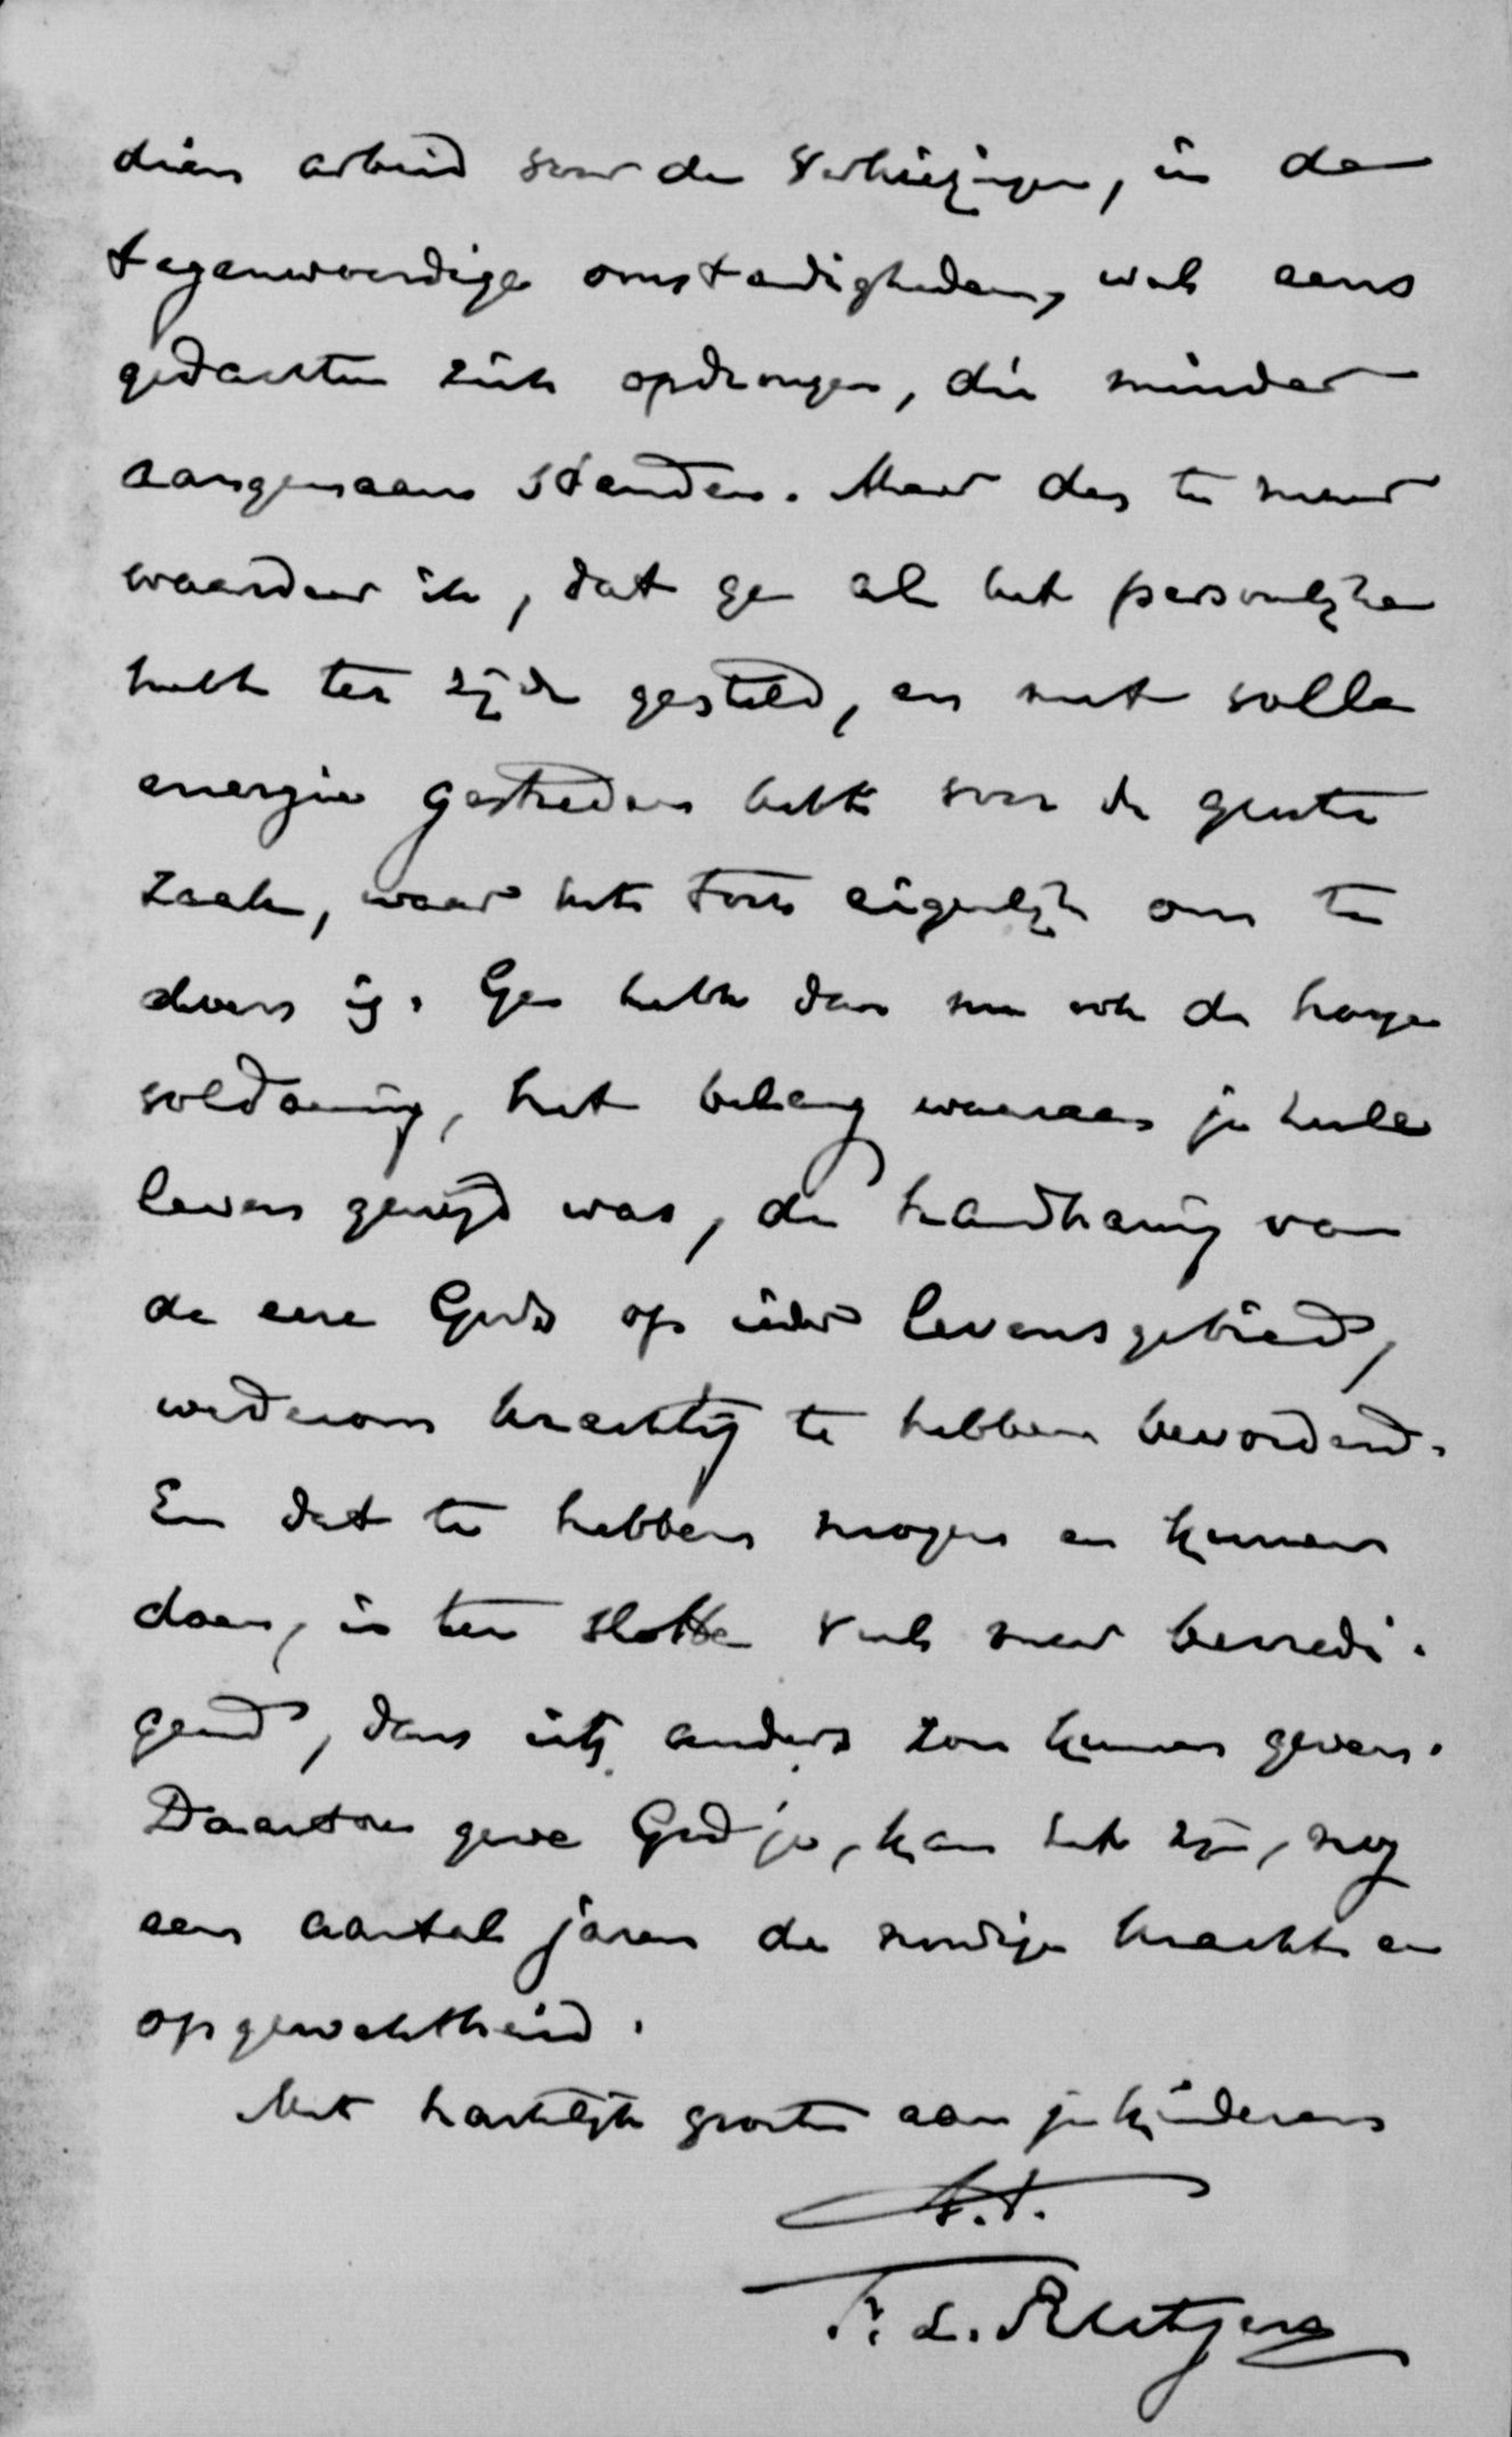 dien arbeid voor de Verkiezingen, in de
tegenwoordige omstandigheden, wel eens
gedachten zich opdrongen, die minder
aangenaam stemden. Maar des te meer
waardeer ik, dat ge al het persoonlijke
hebt ter zijde gesteld, en met volle
energie gestreden hebt voor de groote
zaak, waar het toch eigenlijk om te
doen is. Ge hebt dan nu ook de hooge
voldoening, het belang waaraan je heele
leven gewijd was, de handhaving van
de eere Gods op ieder levensgebied,
wederom krachtig te hebben bevorderd.
En dat te hebben mogen en kunnen
doen, is ten slotte veel meer bevredi-
gend, dan iets anders zou kunnen geven.
Daartoe geve God je, kan het zijn, nog
een aantal jaren de noodige kracht en
opgewektheid.
Met hartelijke groete aan je kinderen
t.t.
F. L. Rutgers